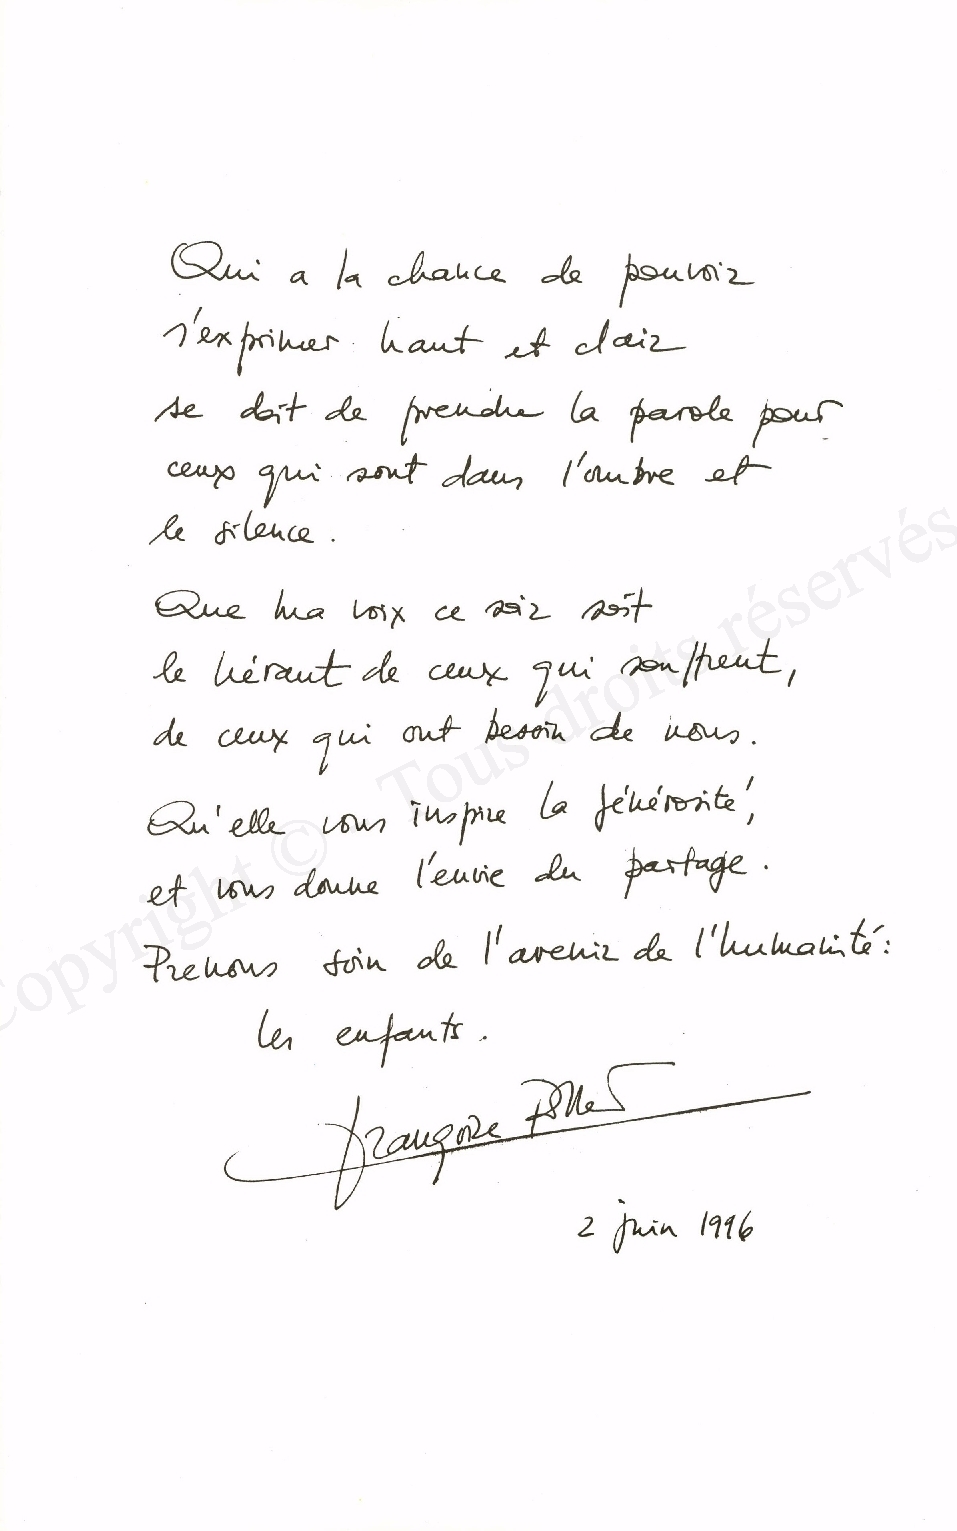 Qui a la chance de pouvoir
s'exprimer haut et clair
se doit de prendre la parole pour
ceux qui sont dans l'ombre et
le silence.
Que ma voix ce soir soit
le héraut de ceux qui souffrent,
de ceux qui ont besoin de nous.
Qu'elle vous inspire la générosité,
et vous donne l'envie du partage.
Prenons soin de l'avenir de l'humanité:
les enfants.
Françoise Pollet
2 juin 1996
Copyright © - Tous droits réservés